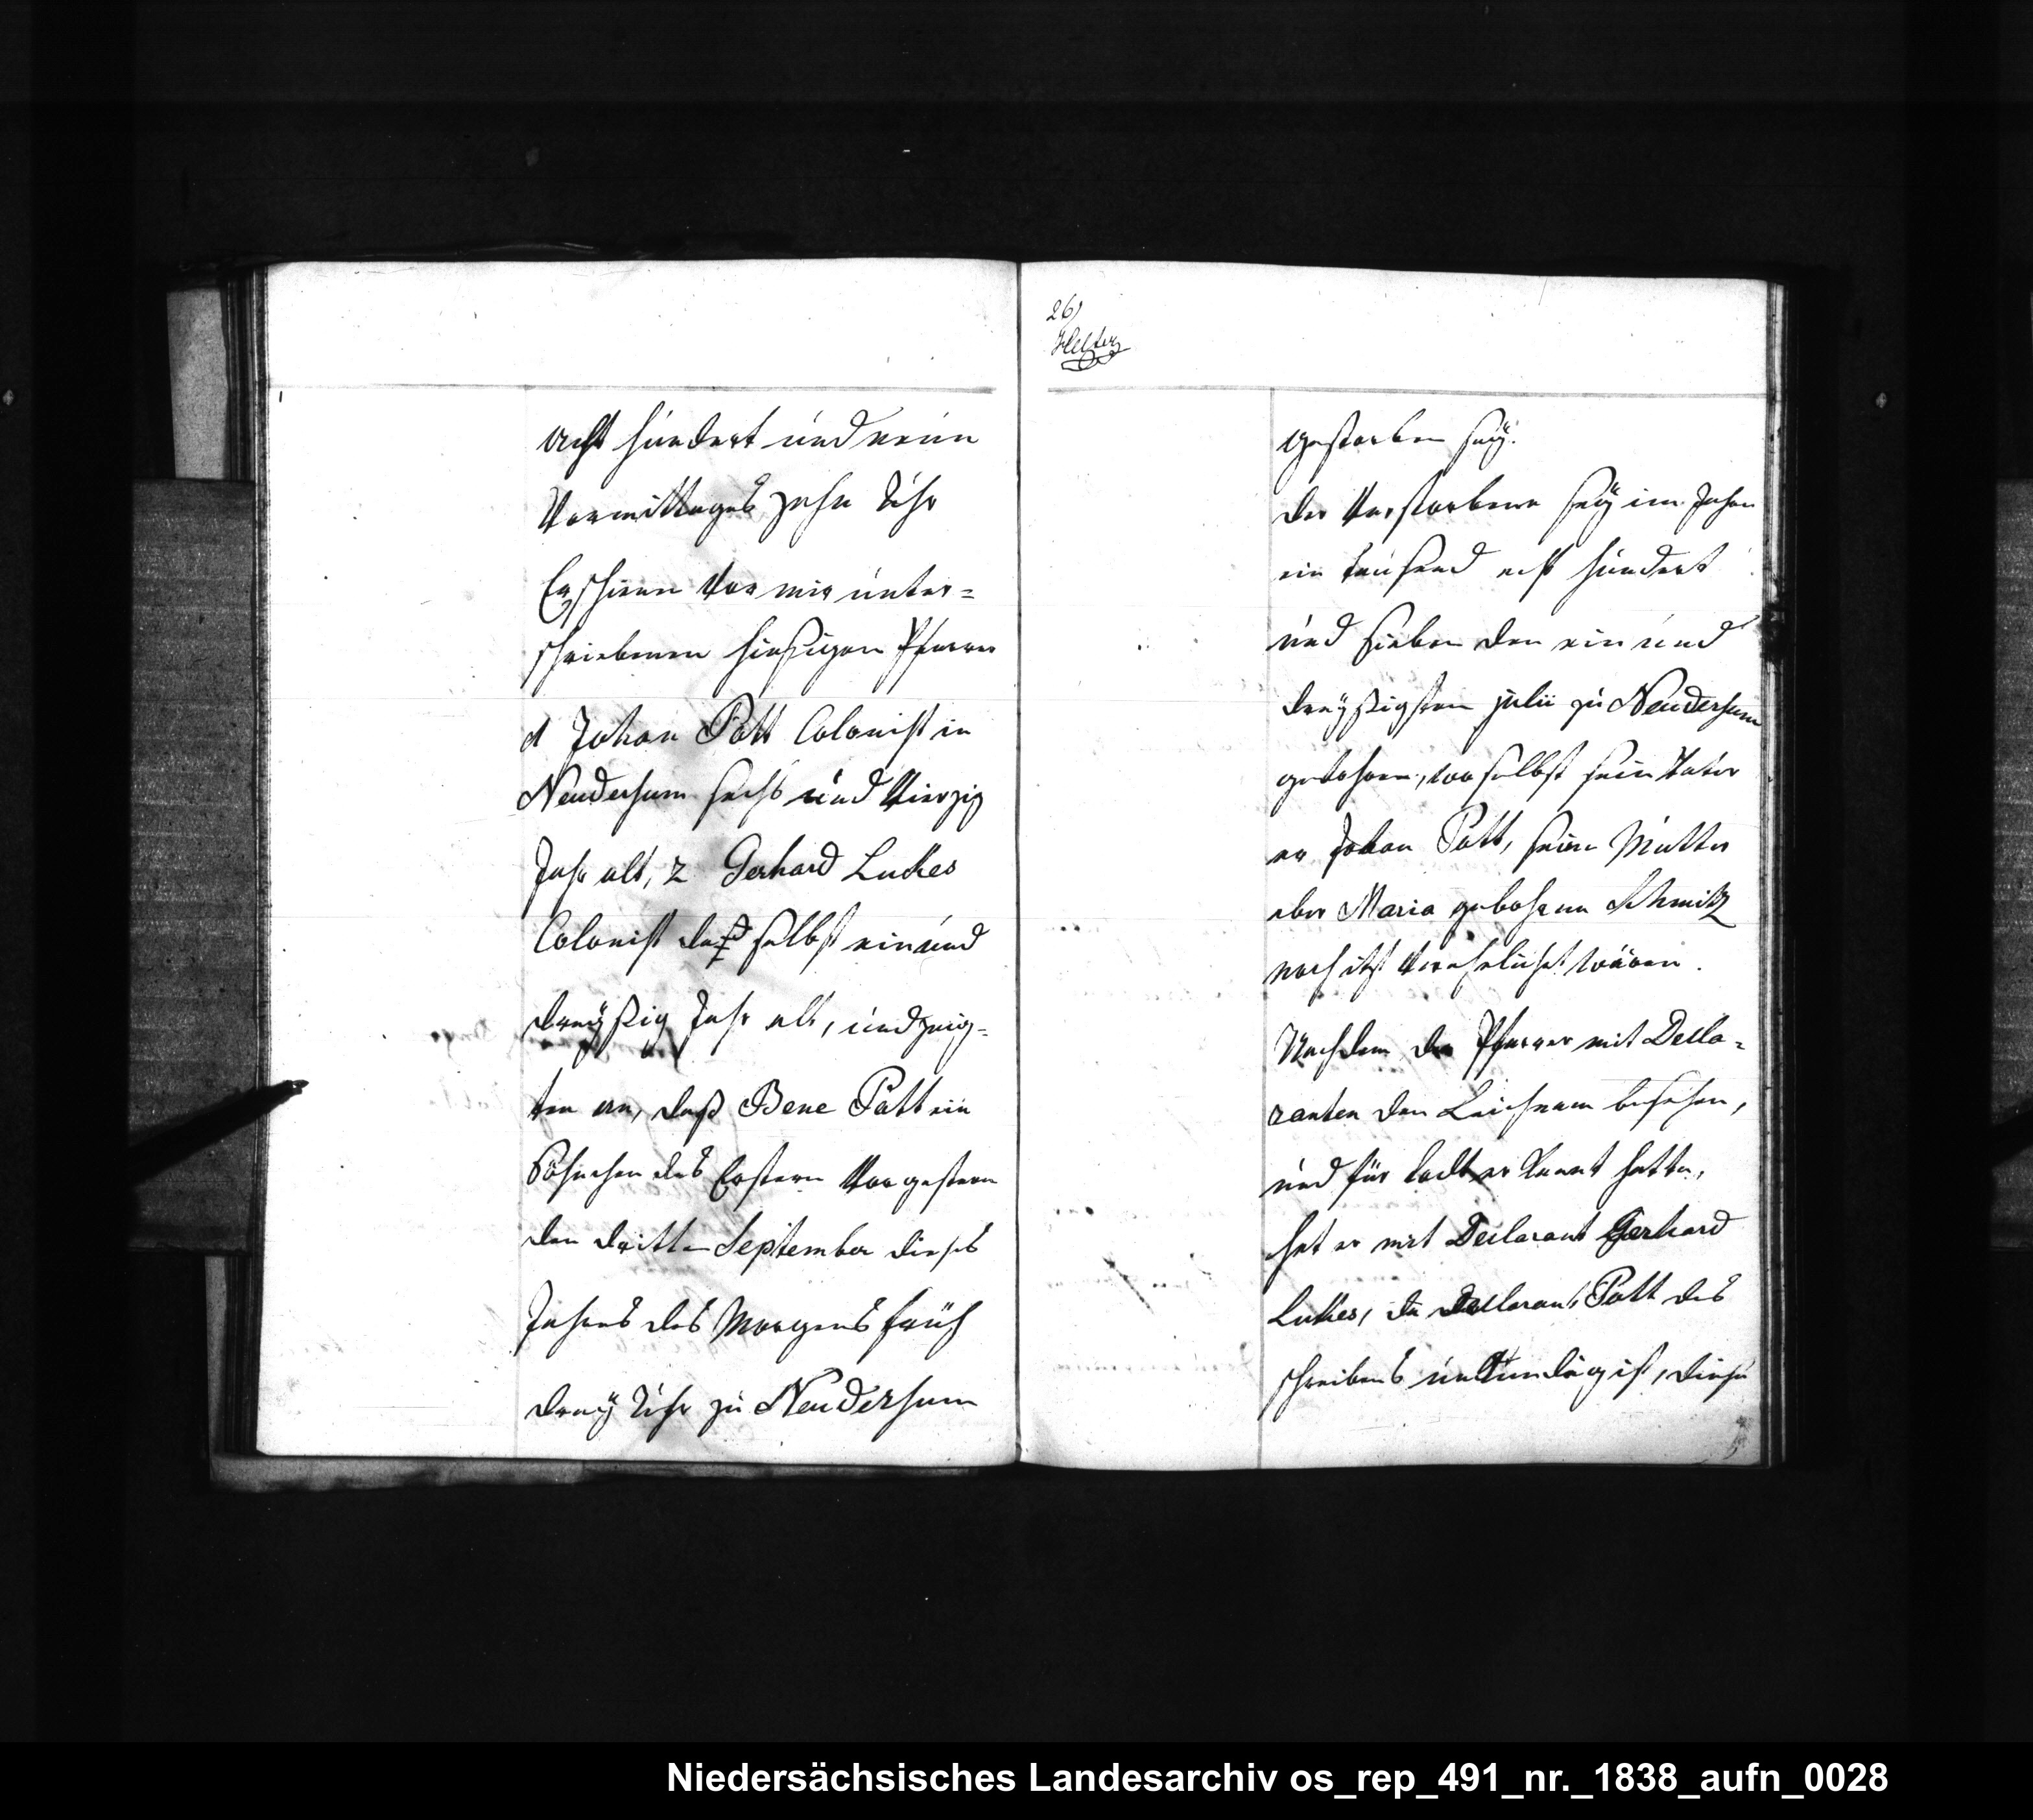 acht hundert und neun
Vormittages zehn Uhr
Erschienen vor mir unter=
schriebenen hiesigen Pfarrer
1 Johan Pott Colonist in
Neudersum sechs und vierzig
Jahr alt, 2 Gerhard Lukes
Colonist daselbst ein und
dreyßig Jahr alt, und zeig=
ten an, daß Bene Pott ein
Söhnchen des Erstern vorgestern
den dritten September dieses
Jahres des Morgens früh
drey Uhr zu Neudersum
26)
gestorben sey.
Der Verstorbene sey im Jahre
ein tausend acht hundert
und sieben den ein und
dreyßigsten julii zu Neudersum
gebohren, wo selbst sein Vater
er Johan Pott, seine Mutter
aber Maria gebohrene Schmitz
noch itzt verehelichet wären.
Nachdem der Pfarrer mit Decla=
ranten den Leichnam besehen,
und für todt erkannt hatte,
hat er mit Declarant Gerhard
Lukes, da Declarant Pott des
schreibens unkundig ist, diese
Niedersächsisches Landesarchiv os_rep_491_nr._1838_aufn_0028